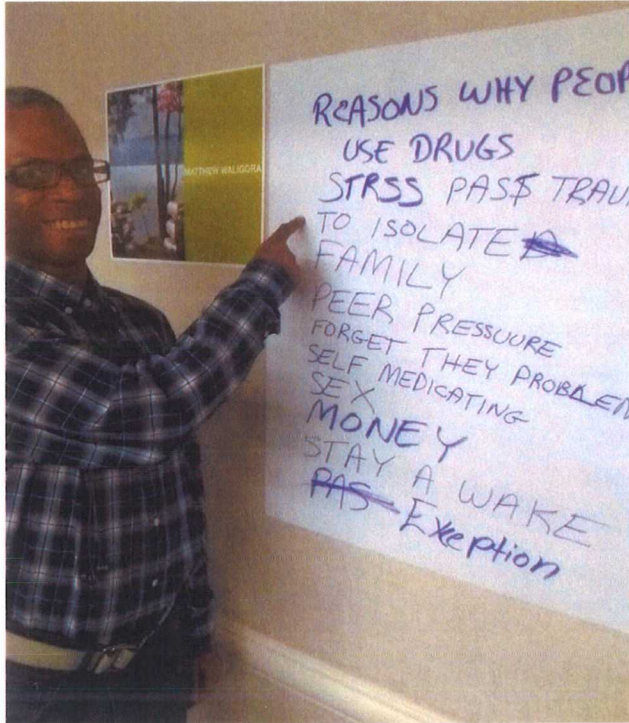 MATTHEW WALIGORA
REASONS WHY PEOP
USE DRUGS
STRSS PAS$ TRAU
TO ISOLATE
FAMILY
PEER PRESSUURE
FORGET THEY PROBLEM
SELF MEDICATING
SEX
MONEY
STAY A WAKE
PAS- Exeption